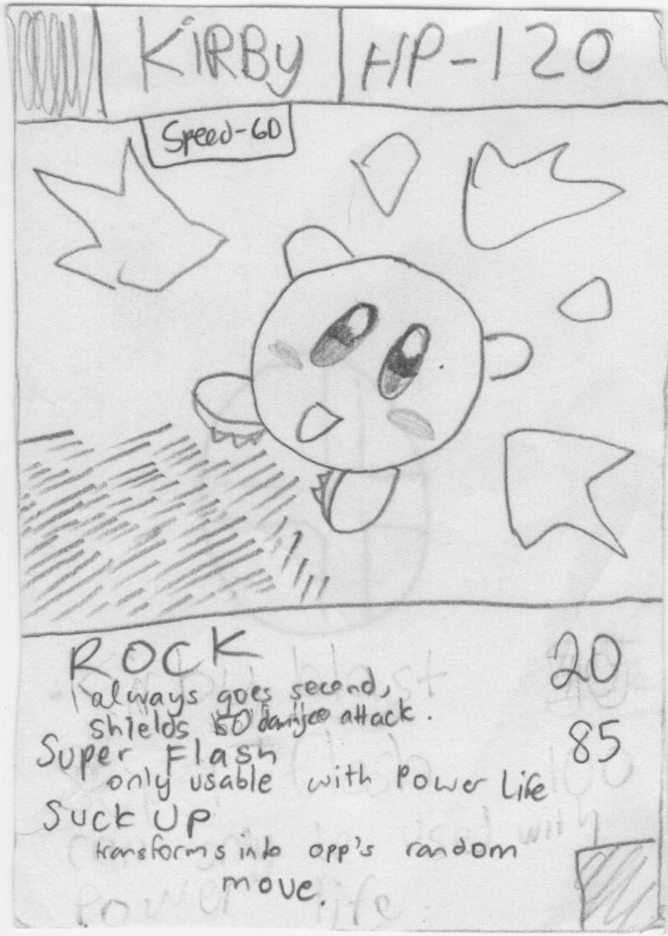 KiRBy HP-120
Speed-60
ROCK 20
always goes second,
shields 50 damage attack.
Super Flash 85
only usable with Power Life
Suck UP
transforms into opp's random
move.
Power life